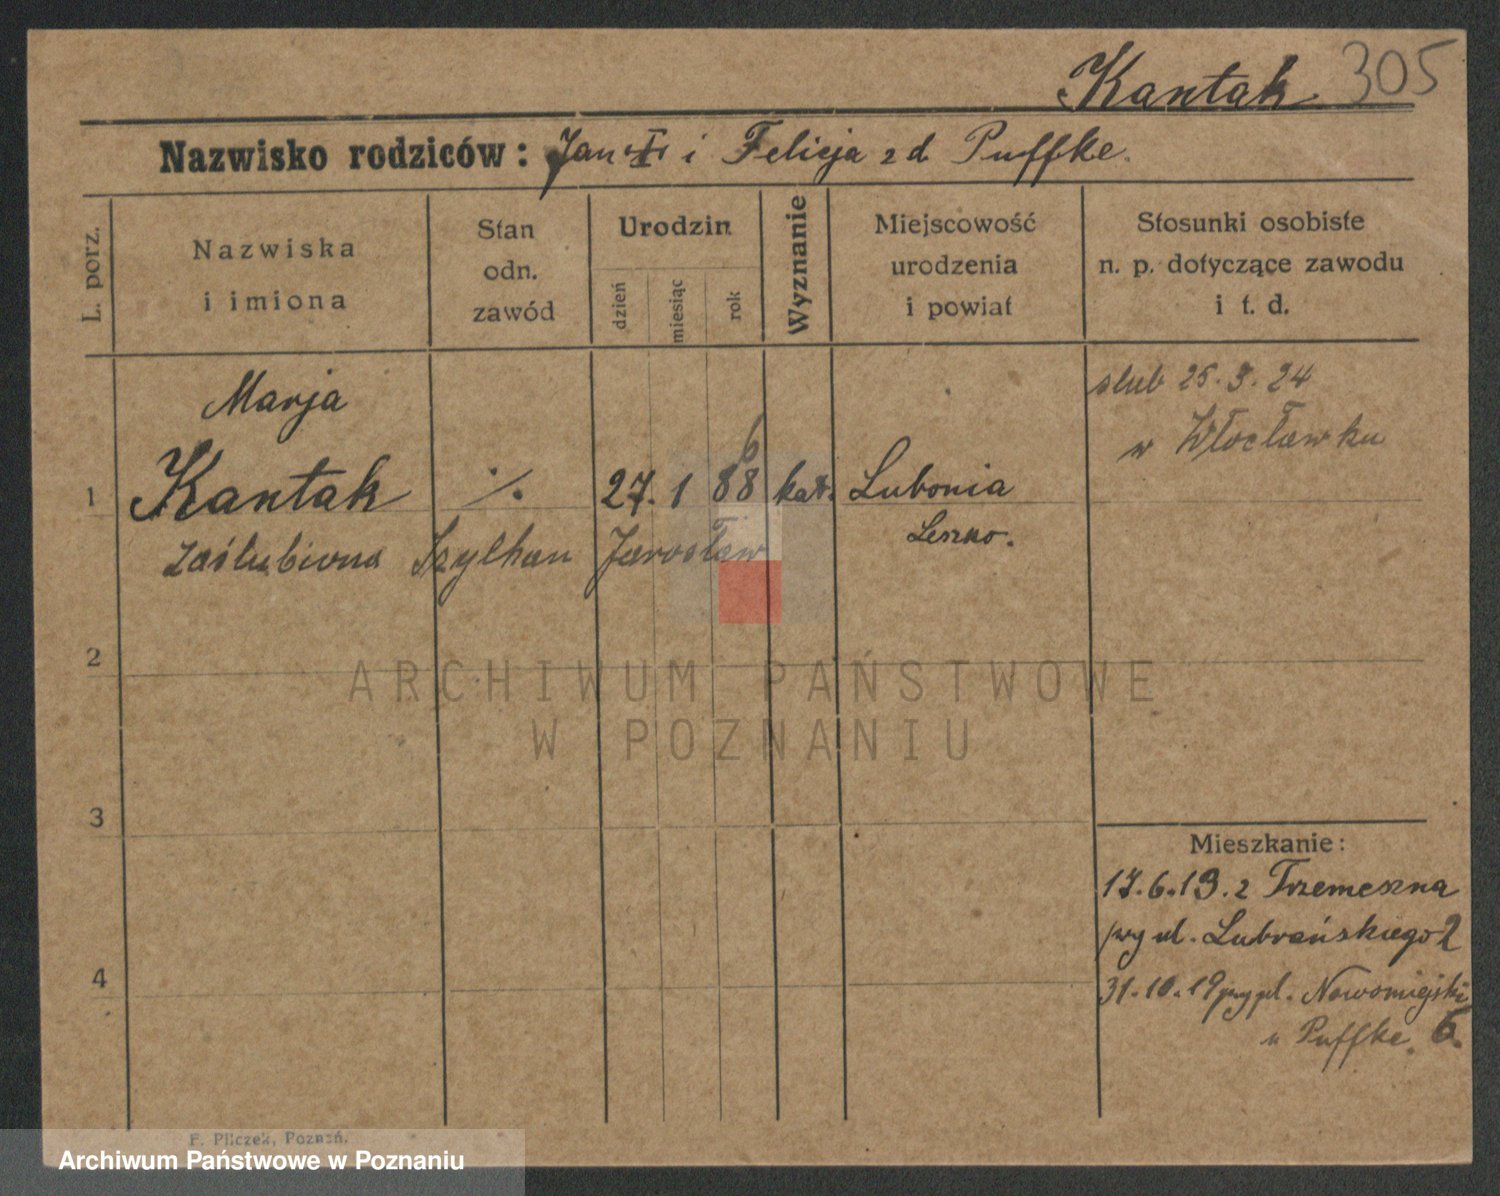 Kantak 305
Nazwisko rodziców: Jan i Felicja z d Puffke.
L. porz.
Nazwiska
i imiona
Stan
odn.
zawód
Urodzin
dzień
miesiąc
rok
Wyznanie
Miejscowość
urodzenia
i powiat
Stosunki osobiste
n. p. dotyczące zawodu
i t. d.
Marja
1 Kantak ·/. 27. 1 88 kat. Lubonia
6
Leszno.
zaślubiona Szylhan Jarosław
slub 25. 3. 24
w Włocławku
2
3
4
Mieszkanie:
17.6.19. z Trzemeszna
przy ul. Lubrańskiego 2
31.10.19 przy pl. Nowomiejski
u Puffke. 6.
F. Pilczek, Poznań.
ARCHIWUM PAŃSTWOWE
W POZNANIU
Archiwum Państwowe w Poznaniu